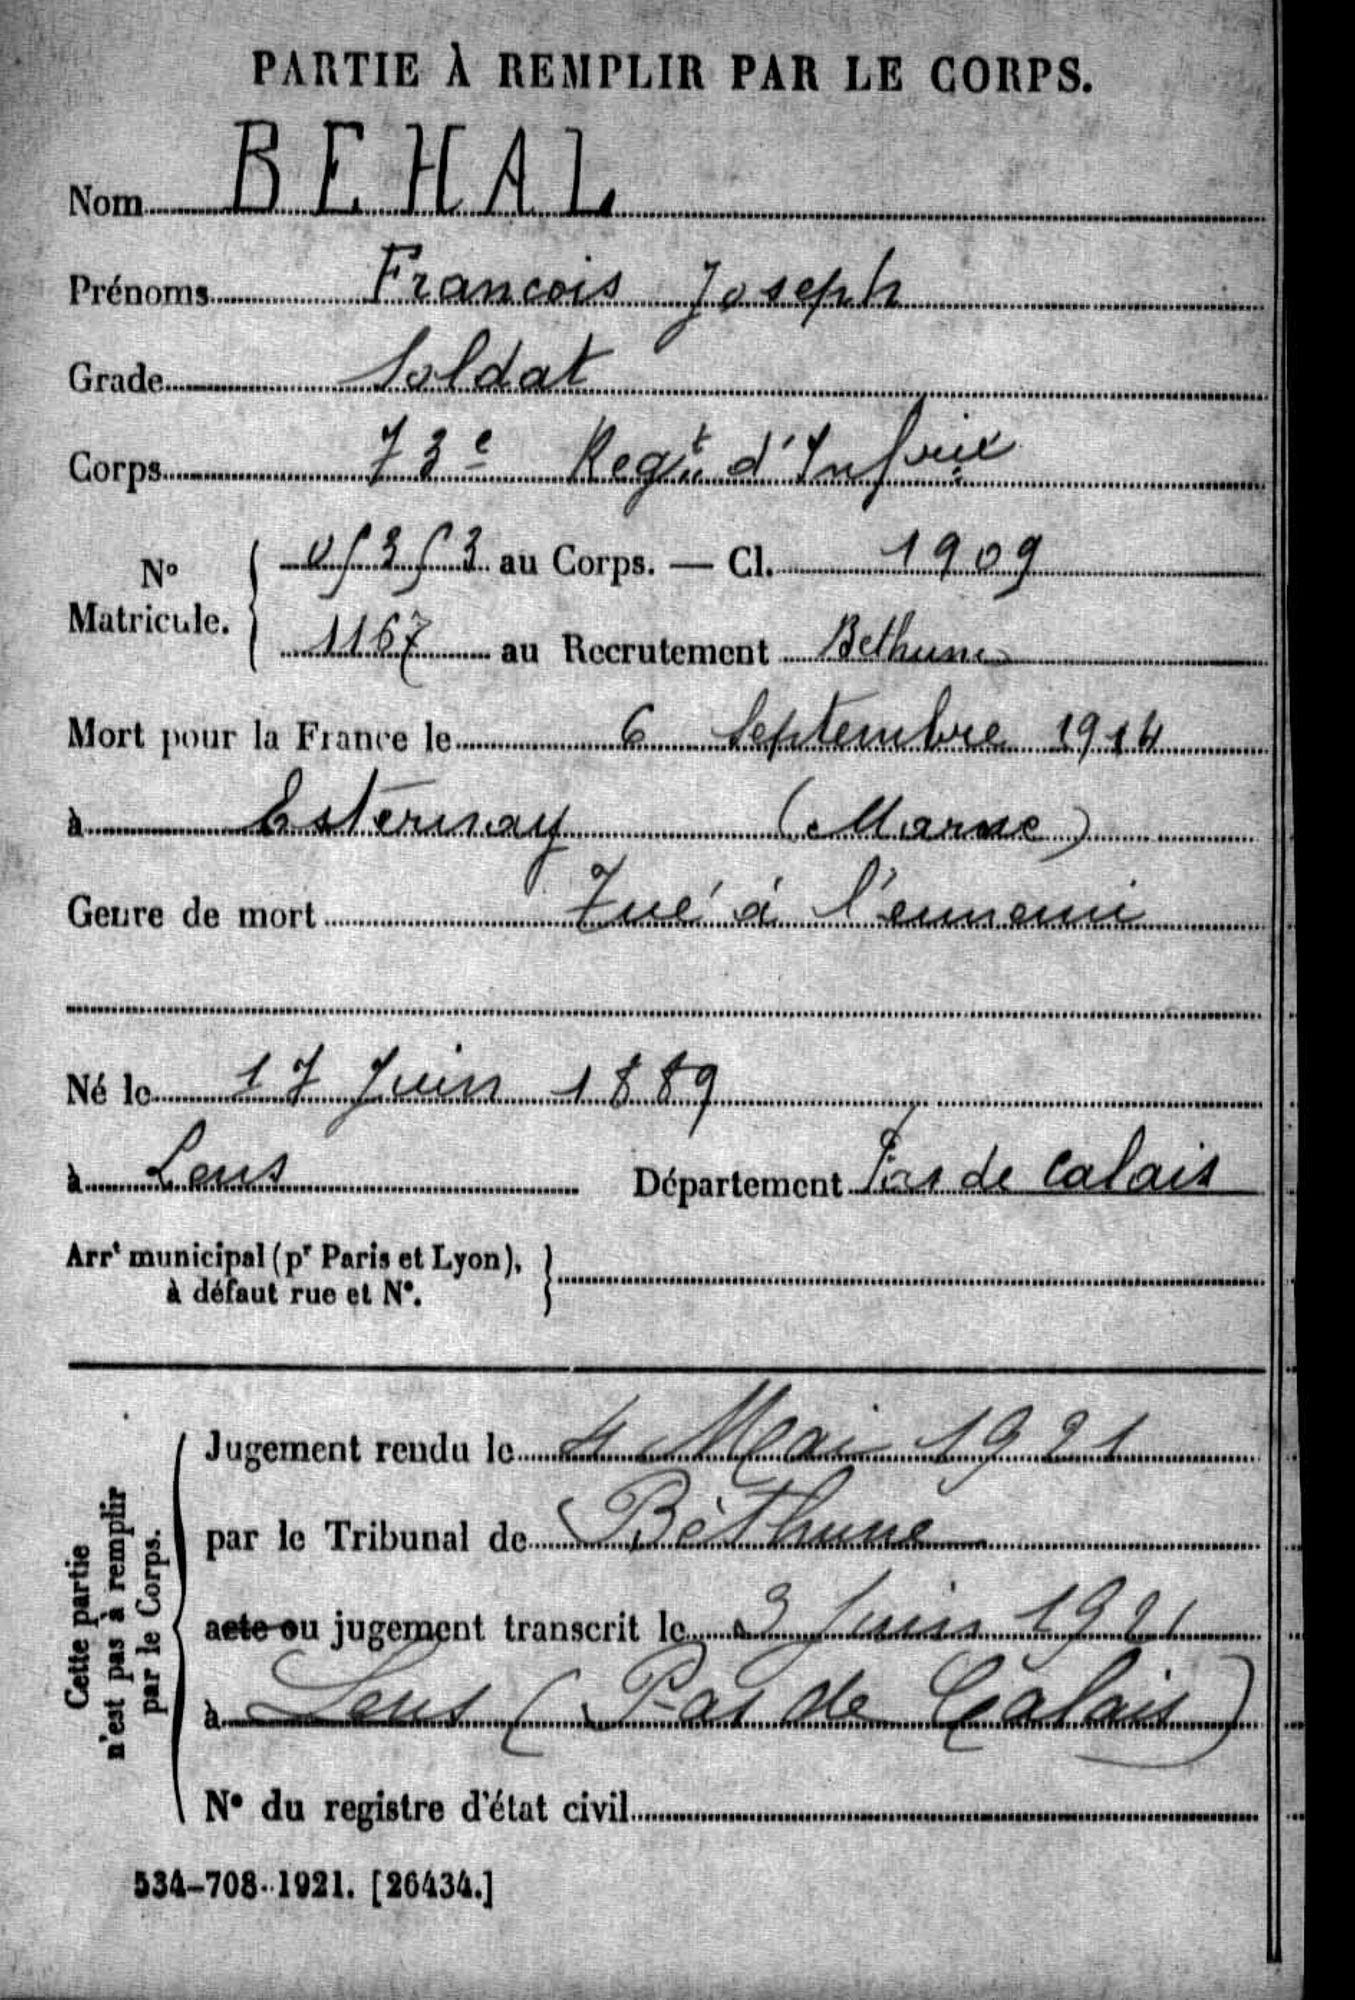 PARTIE À REMPLIR PAR LE CORPS.
Nom BEHAL
Prénoms Francois Joseph
Grade Soldat
Corps 73e Regt d'Infrie
No Matricule. 05353 au Corps. — Cl. 1909
1167 au Recrutement Bethune
Mort pour la France le 6 Septembre 1914
à Esternay (Marne)
Genre de mort Tué à l'ennemi
Né le 17 Juin 1889
à Lens Département Pas de Calais
Arrt municipal (pr Paris et Lyon),
à défaut rue et No.
Cette partie
n'est pas à remplir
par le Corps.
Jugement rendu le 4 Mai 1921
par le Tribunal de Béthune
acte ou jugement transcrit le 3 Juin 1921
à Lens (Pas de Calais)
No du registre d'état civil
534-708-1921. [26434.]